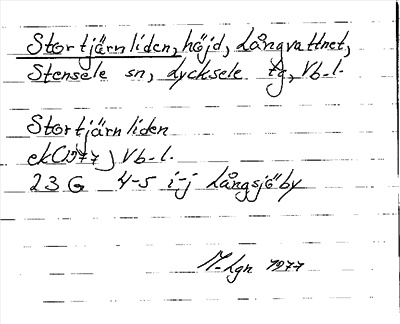 Stortjärnliden, höjd, Långvattnet,
Stensele sn, Lycksele tg, Vb-l.
Stortjärnliden
ek(1977) Vb-l.
23 G 4-5 i-j Långsjöby
M-Lgn 1977